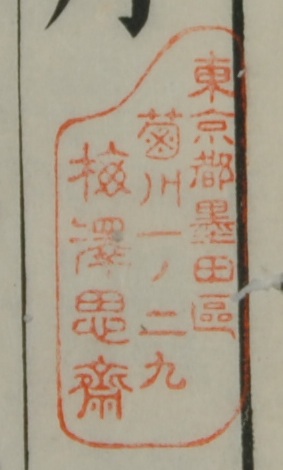 東京都墨田區
菊川一ノ二九
梅澤思齋